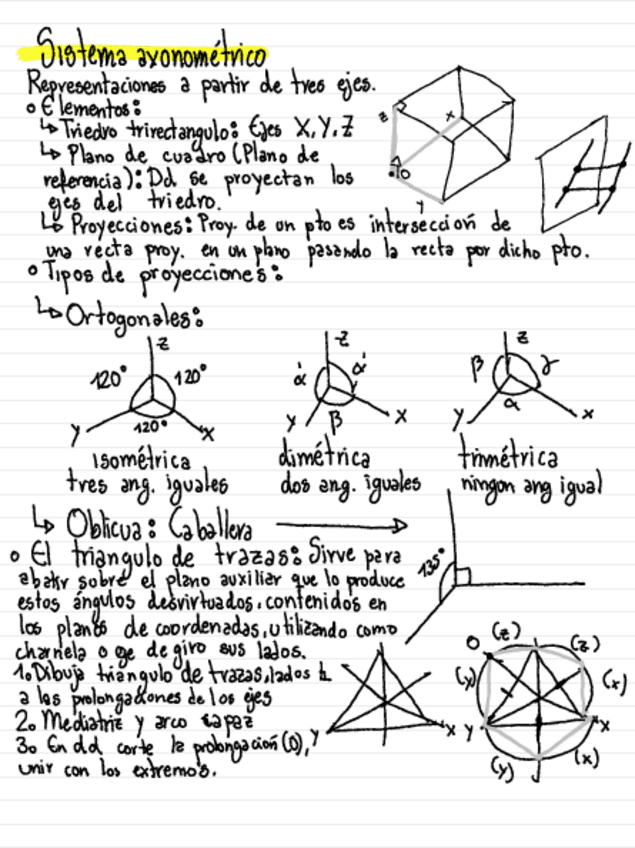 Sistema axonométrico
Representaciones a partir de tres ejes.
o Elementos:
↳ Triedro trirectangulo: Ejes X, Y, Z
↳ Plano de cuadro (Plano de
referencia): Dd se proyectan los
ejes del triedro.
↳ Proyecciones: Proy. de un pto es intersección de
una recta proy. en un plano pasando la recta por dicho pto.
z
x
o
y
o Tipos de proyecciones:
↳ Ortogonales:
z
120° 120°
120°
y x
isométrica
tres ang. iguales
z
α α
β
y x
dimétrica
dos ang. iguales
z
β γ
α
y x
trimétrica
ningon ang igual
↳ Oblicua: Caballera
135°
o El triangulo de trazas: Sirve para
abatir sobre el plano auxiliar que lo produce
estos ángulos desvirtuados, contenidos en
los planos de coordenadas, utilizando como
charnela o eje de giro sus lados.
1. Dibuja triángulo de trazas, lados
a las prolongaciones de los ejes
2. Mediatriz y arco capaz
3. En dd corte la prolongación (O),
unir con los extremos.
y x
O (z) (z)
(y) (x)
y x
(y) (x)